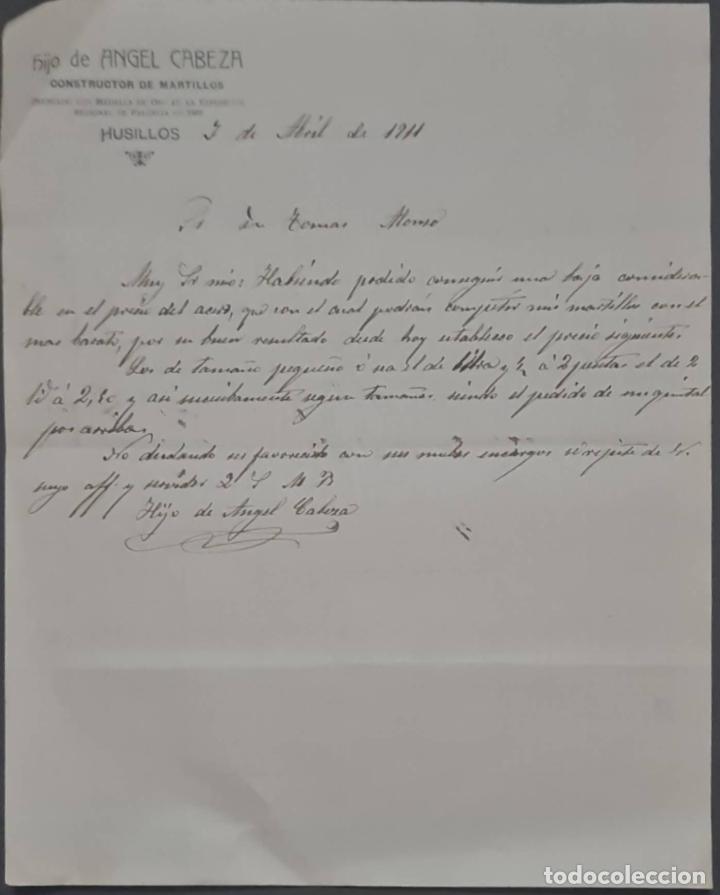 Hijo de ANGEL CABEZA
CONSTRUCTOR DE MARTILLOS
PREMIADO CON MEDALLA DE ORO EN LA EXPOSICIÓN
REGIONAL DE PALENCIA EN
HUSILLOS 7 de Abril de 1911
Sr Dn Tomas Alonso
Muy Sr mio: Habiendo podido conseguir una baja considera-
ble en el precio del acero, que con el cual podrán competir mis martillos con el
mas barato, por su buen resultado desde hoy establezco el precio siguiente:
Los de tamaño pequeño ó sea el de libra y ½ á 2 pesetas el de 2
id á 2, y asi sucesibamente segun tamaños siendo el pedido de un quintal
por arriba.
No dudando me favorecerá con sus encargos se repite de V.
suyo aff. y servidor Q S M B
Hijo de Angel Cabeza
todocoleccion